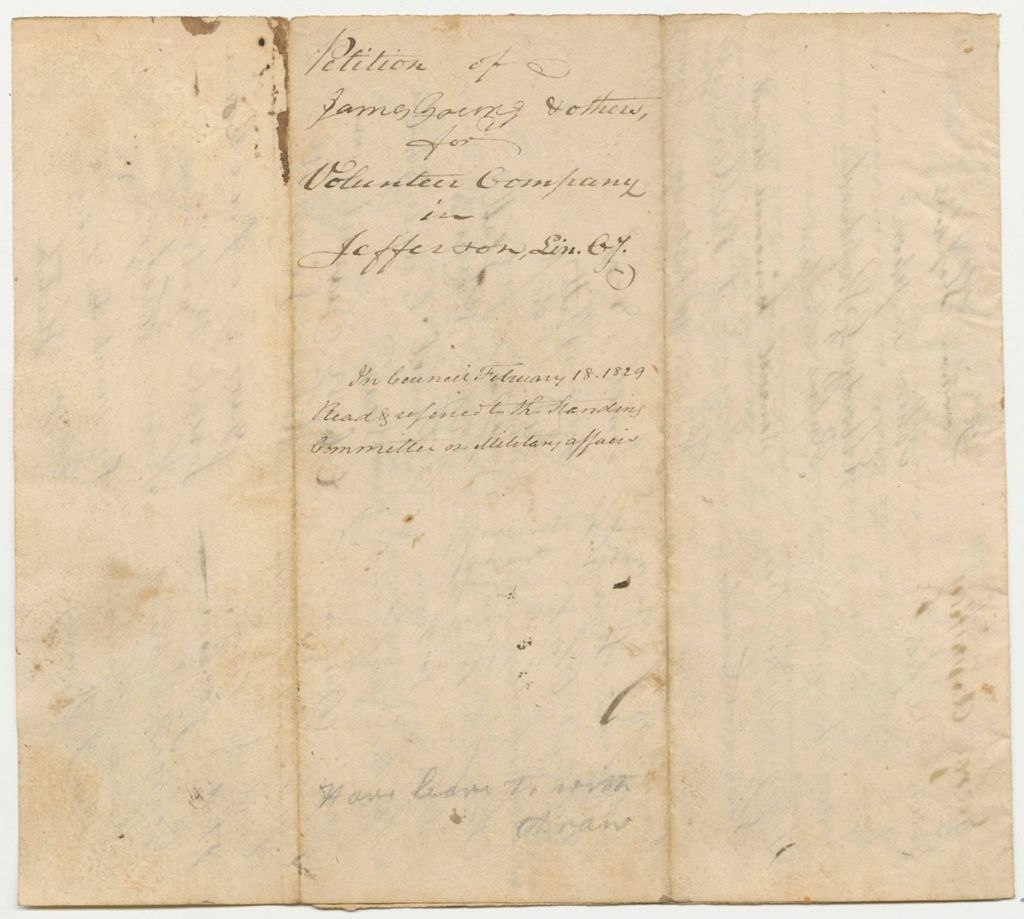 Petition of
James & others,
for
Volunteer Company
in
Jefferson, Lin. Cy.
In Council February 18. 1829
Read & referred to the Standing
Committee on Military affairs
Have leave to with
draw